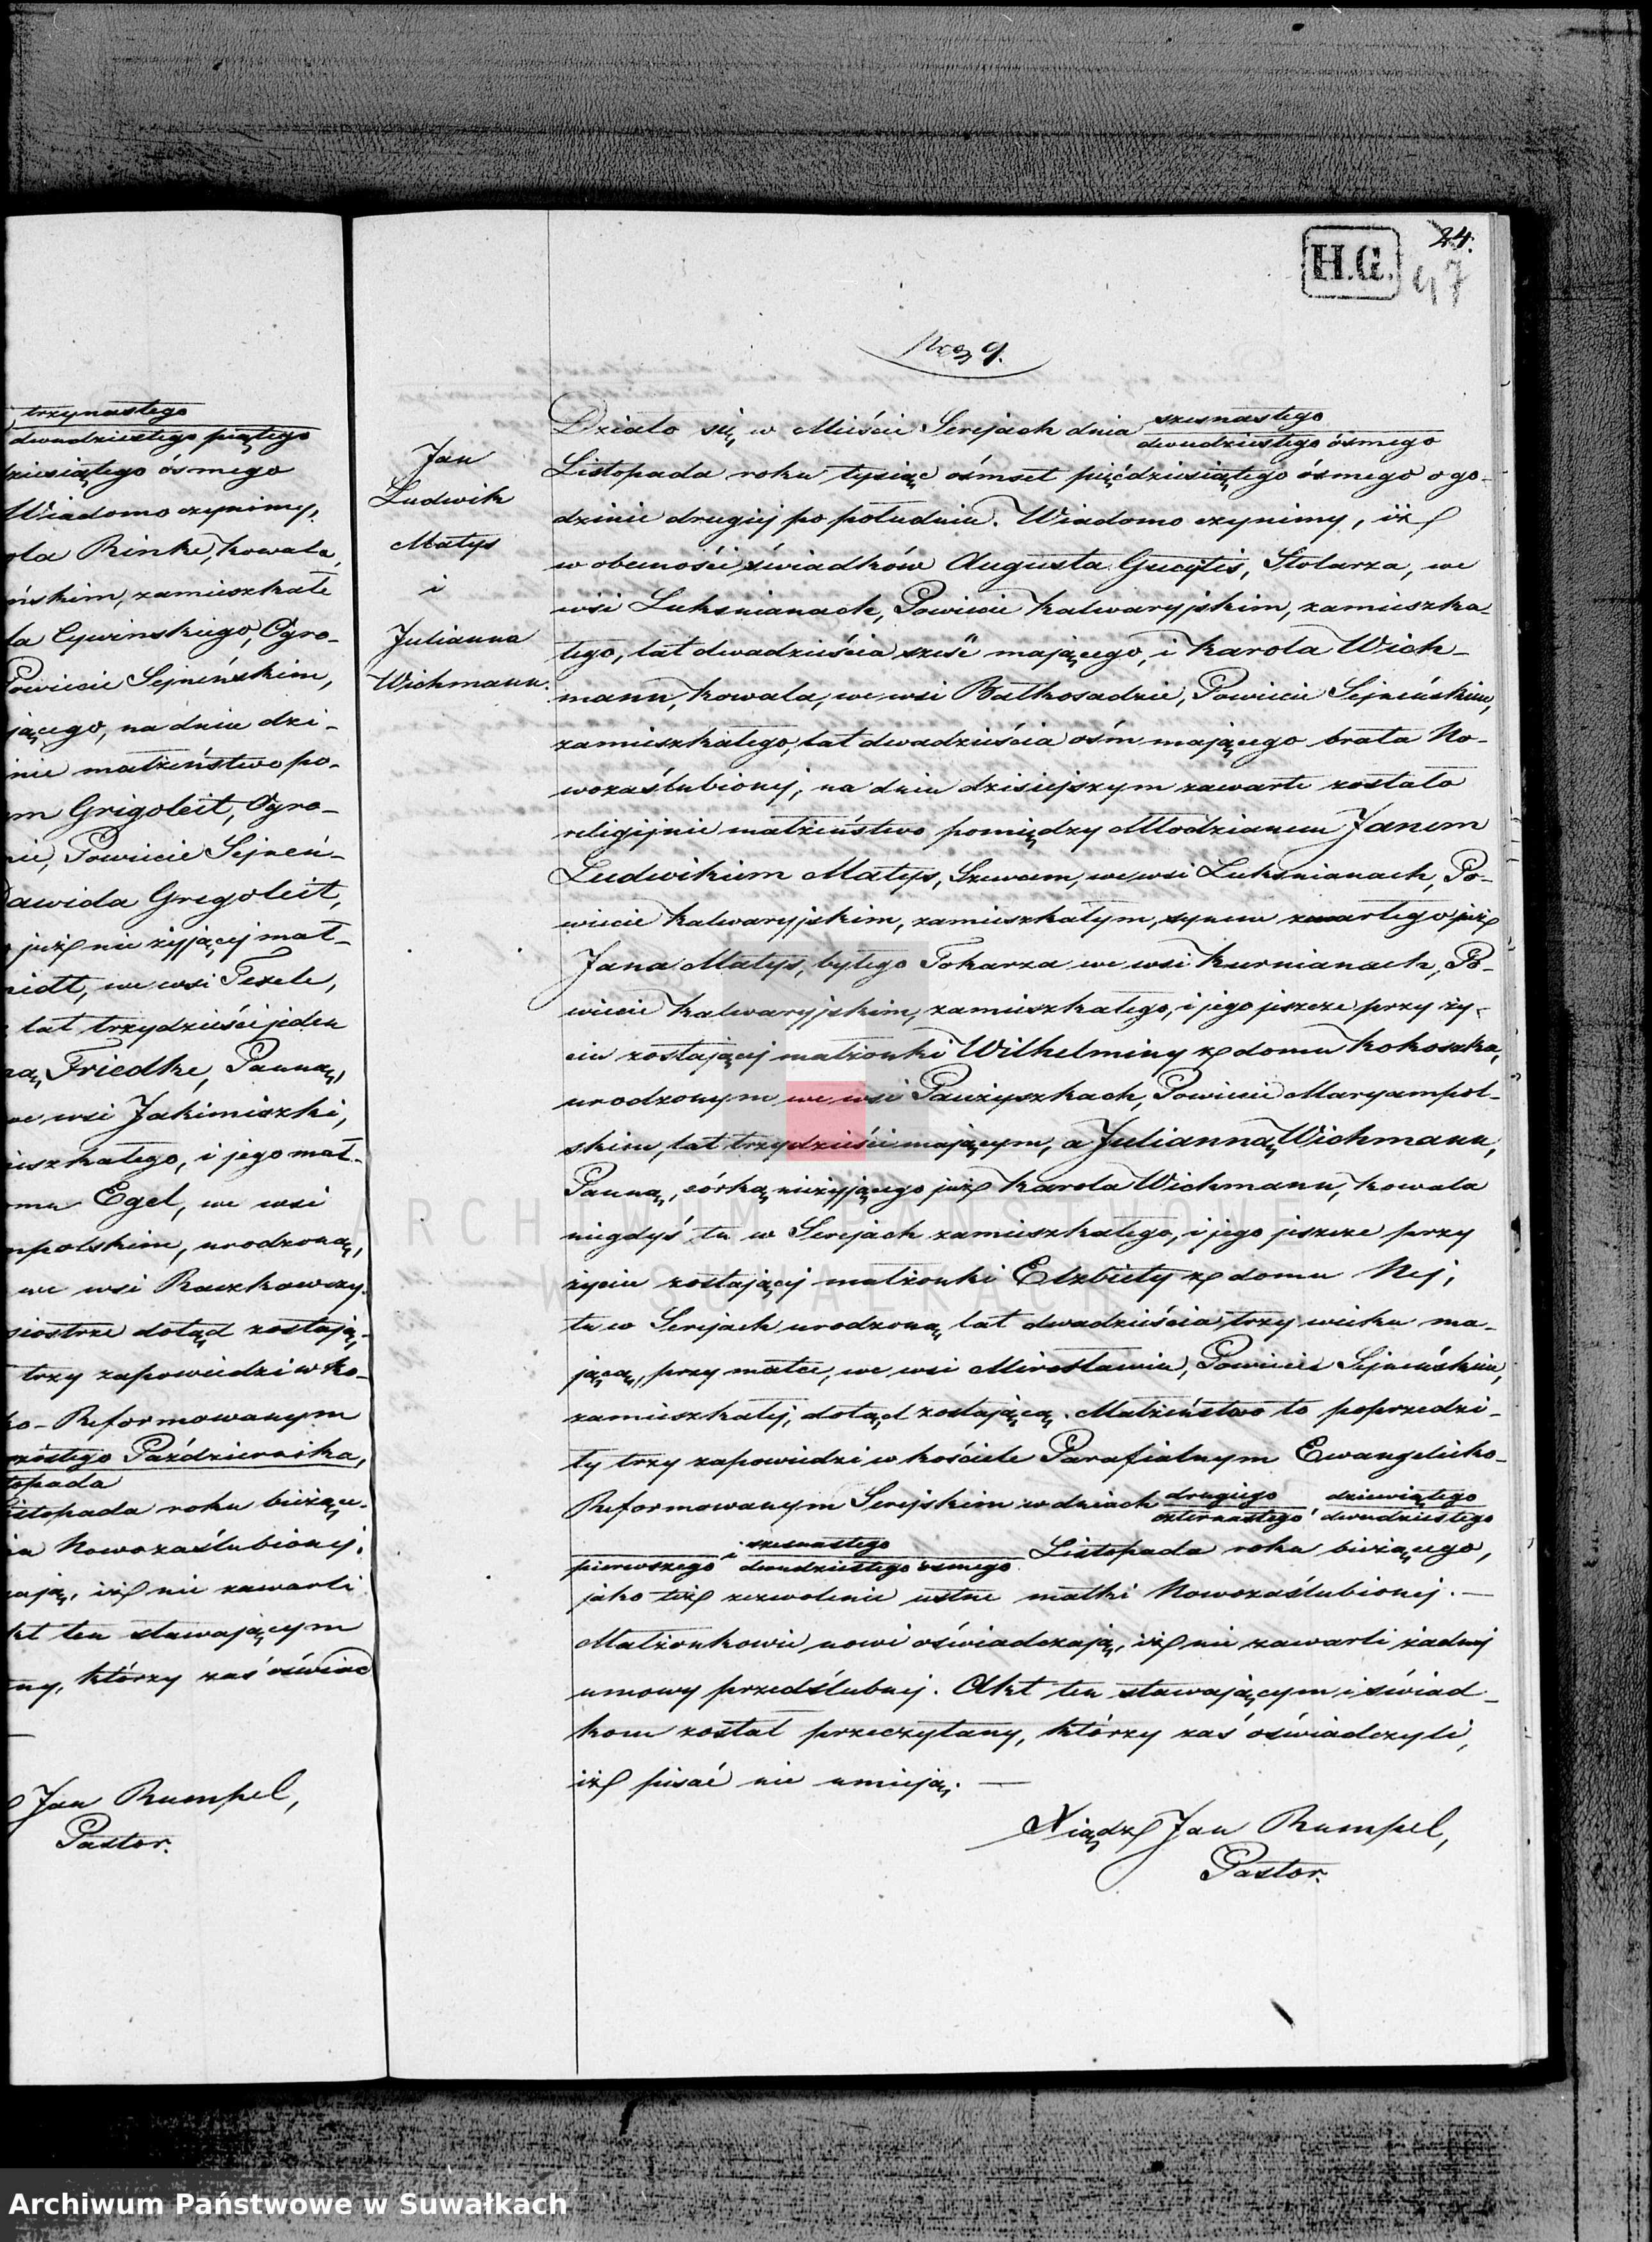 trzynastego
dwudziestego piątego
dziesiątego ósmego
Wiadomo czynimy,
ola Rinke, kowala,
ńskim, zamieszkałe
la Cywinskiego, Ogro-
Powiecie Sejneńskim,
jącego, na dniu dzi-
nie małżeństwo po-
m Grigoleit, Ogro-
nie, Powiecie Sejneń-
awida Gregoleit,
już nie żyjącej mał-
midtt, we wsi Tezele,
lat trzydzieści jeden
ną Friedke, Panną,
we wsi Jakimiszki,
ieszkałego, i jego mał-
mu Egel, we wsi
mpolskim, urodzoną,
we wsi Raczkowizy
siostrze dotąd zostają-
trzy zapowiedzi w ko-
ko-Reformowanym
szóstego Października,
topada
Listopada roku bieżące-
ia Nowozaślubionej.
zają, iż nie zawarli
kt ten stawającym
ny, którzy zaś oświad
Jan Rumpel,
Pastor.
24.
H.G.
47
Nro 9.
Jan
Ludwik
Matys
i
Julianna
Wichmann.
Działo się w Mieście Serejach dnia szesnastego
dwudziestego ósmego
Listopada roku tysiąc ośmset pięćdziesiątego ósmego o go-
dzinie drugiej po południu. Wiadomo czynimy, iż
w obecności świadków Augusta Gucytis, Stolarza, we
wsi Luksnianach, Powiecie Kalwaryjskim, zamieszka
łego, lat dwadzieścia sześć mającego, i Karola Wich-
mann, kowala, we wsi Balkosadzie, Powiecie Sejneńskim,
zamieszkałego, lat dwadzieścia ośm mającego brata No-
wozaślubionej, na dniu dzisiejszym zawarte zostało
religijnie małżeństwo pomiędzy Młodzianem Janem
Ludwikiem Matys, Szewcem, we wsi Luksnianach, Po-
wiecie Kalwaryjskim, zamieszkałym, synem zmarłego już
Jana Matys, byłego Tokarza we wsi Kurnianach, Po-
wiecie Kalwaryjskim, zamieszkałego, i jego jeszcze przy ży-
ciu zostającej małżonki Wilhelminy z domu Kokoszka,
urodzonym we wsi Pauzyszkach, Powiecie Maryampol-
skim, lat trzydzieści mającym, a Julianną Wichmann,
Panną, córką nieżyjącego już Karola Wichmann, kowala
niegdyś tu w Serejach zamieszkałego, i jego jeszcze przy
życiu zostającej małżonki Elzbiety z domu Nej,
tu w Serejach urodzoną lat dwadzieścia trzy wieku ma-
jącą, przy matce, we wsi Mirosławiu, Powiecie Sejneńskim,
zamieszkałej, dotąd zostającą. Małżeństwo to poprzedzi-
ły trzy zapowiedzi w kościele Parafialnym Ewangelicko-
Reformowanym Serejskim w dniach drugiego, dziewiątego
czternastego, dwudziestego
pierwszego i szesnastego Listopada roku bieżącego,
dwudziestego ósmego
jako też zezwolenie ustne matki Nowozaślubionej. —
Małżonkowie nowi oświadczają, iż nie zawarli żadnej
umowy przedślubnej. Akt ten stawającym i świad-
kom został przeczytany, którzy zaś oświadczyli,
iż pisać nie umieją. —
Xiądz Jan Rumpel,
Pastor.
ARCHIWUM PAŃSTWOWE
W SUWAŁKACH
Archiwum Państwowe w Suwałkach